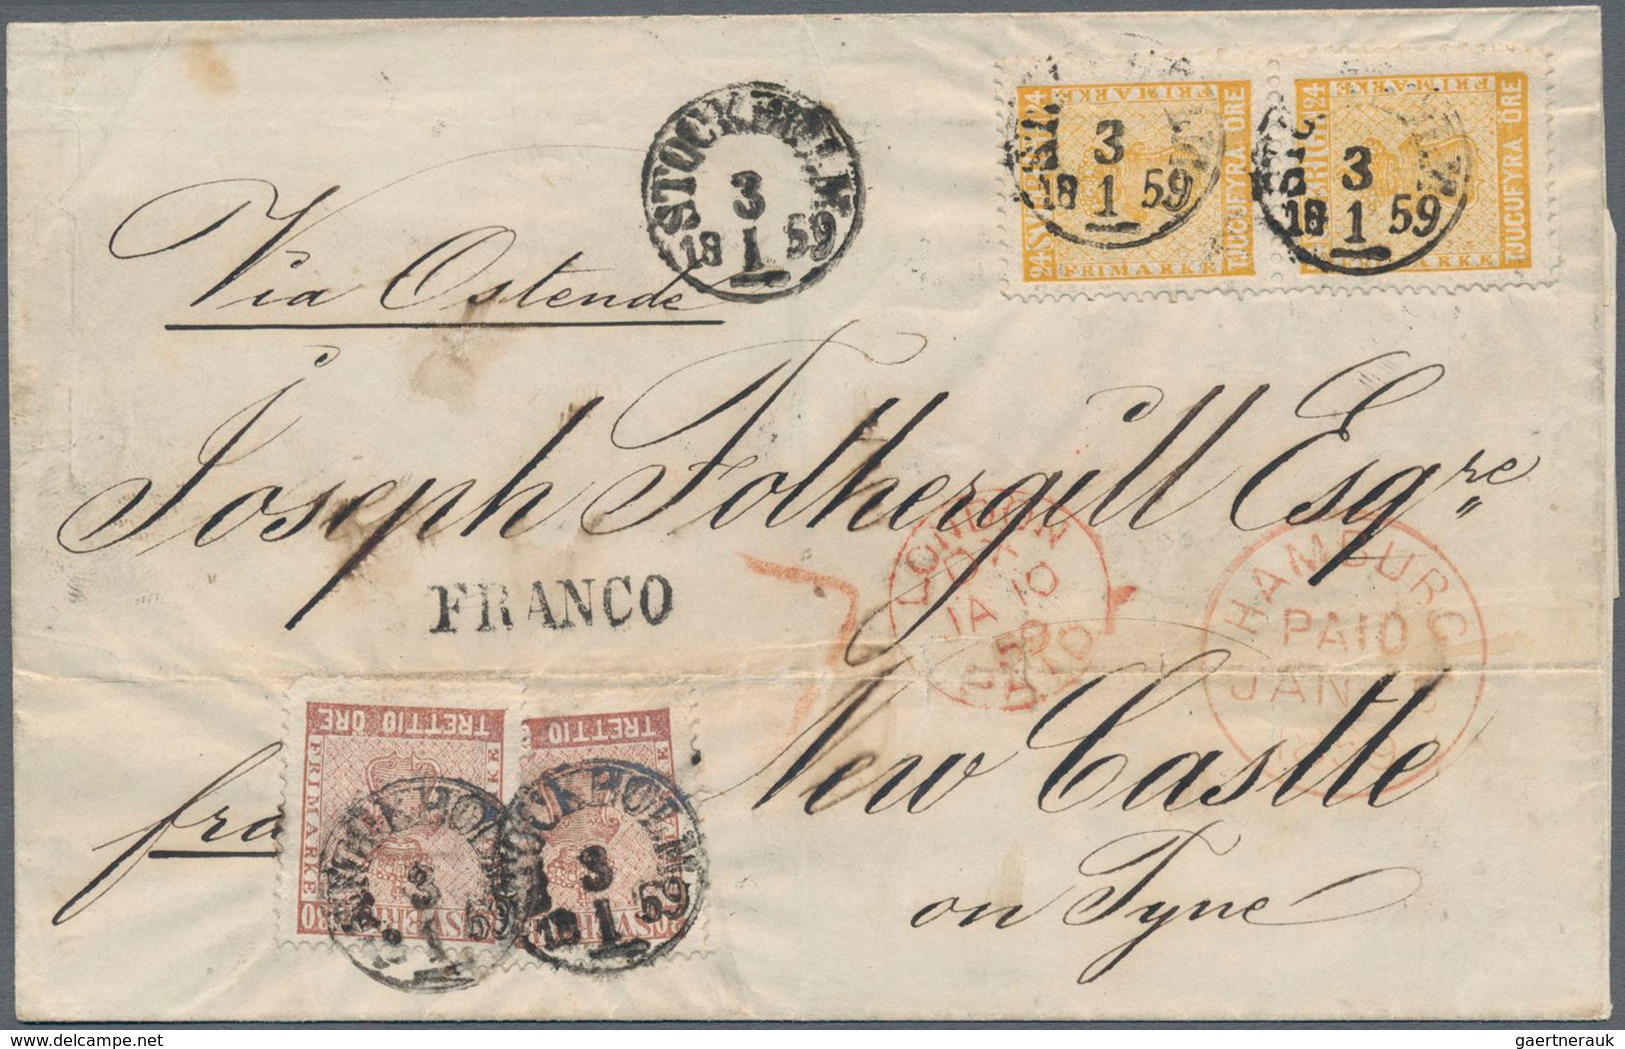 STOCKHOLM
3
18 1 59
24 FRIMARKE 24
SVERIGE
TJUGUFYRA ÖRE
FRIMARKE
3
18 1 59
24
FRIMARKE
TJUGUFYRA ÖRE
3
18 1 59
Via Ostende
Joseph Fothergill Esqre
LONDON
JA 10
59
PAID
HAMBURG
PAID
JAN
FRANCO
New Castle
on Tyne
fra
TRETTIO ÖRE
FRIMARKE
30 SVERIGE
STOCKHOLM
3
18 1 59
TRETTIO
STOCKHOLM
3
18 1 59
delcampe.net
gaertnerauk